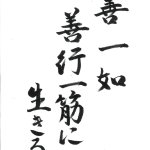 善一如
善行一筋に
生きろ